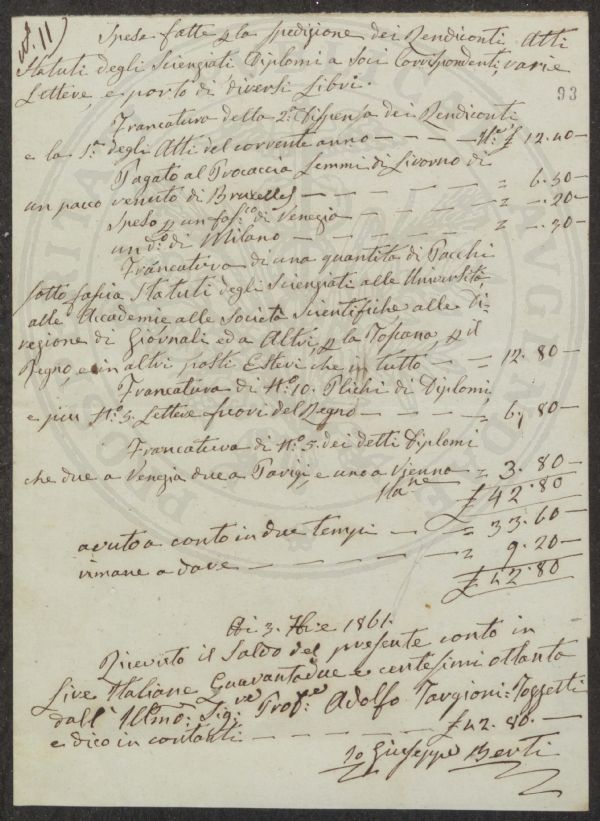 N. 11)
Spese fatte p la spedizione dei Rendiconti, Atti
Statuti degli Scienziati Diplomi a Soci Corrispondenti, varie
Lettere, e porto di diversi Libri.
93
Francatura della 2ª Dispensa dei Rendiconti
e la 1ª degli Atti del corrente anno — — — — £ 12.40 —
Pagato al Procaccia Lemmi di Livorno di
un pacco venuto di Bruxelles — — — — — = 6.50 —
Speso p un fasco di Venezia — — — — = -.20 —
un do di Milano — — — — — — = -.30 —
Francatura di una quantità di Pacchi
sotto fascia Statuti degli Scienziati alle Università,
alle Accademie alle Società Scientifiche alle Di-
rezione di Giornali ed a Altri p la Toscana, p il
Regno, e in altri posti Esteri che in tutto — — = 12.80 —
Francatura di No 10. Plichi di Diplomi
e piu No 5. Lettere fuori del Regno — — — — = 6.80 —
Francatura di No 5. dei detti Diplomi
che due a Venezia due a Parigi e uno a Vienna = 3.80 —
£ 42.80
avuto a conto in due tempi — — = 33.60 —
rimane a dare — — — — — — = 9.20 —
£ 42.80
Di 3. 1861.
Ricevuto il Saldo del presente conto in
Lire Italiane Quarantadue e centesimi ottanta
dall' Illmo: Sigre Profre Adolfo Targioni-Tozzetti
e dico in contanti — — — — — — £ 42.80. —
Io Giuseppe Berti